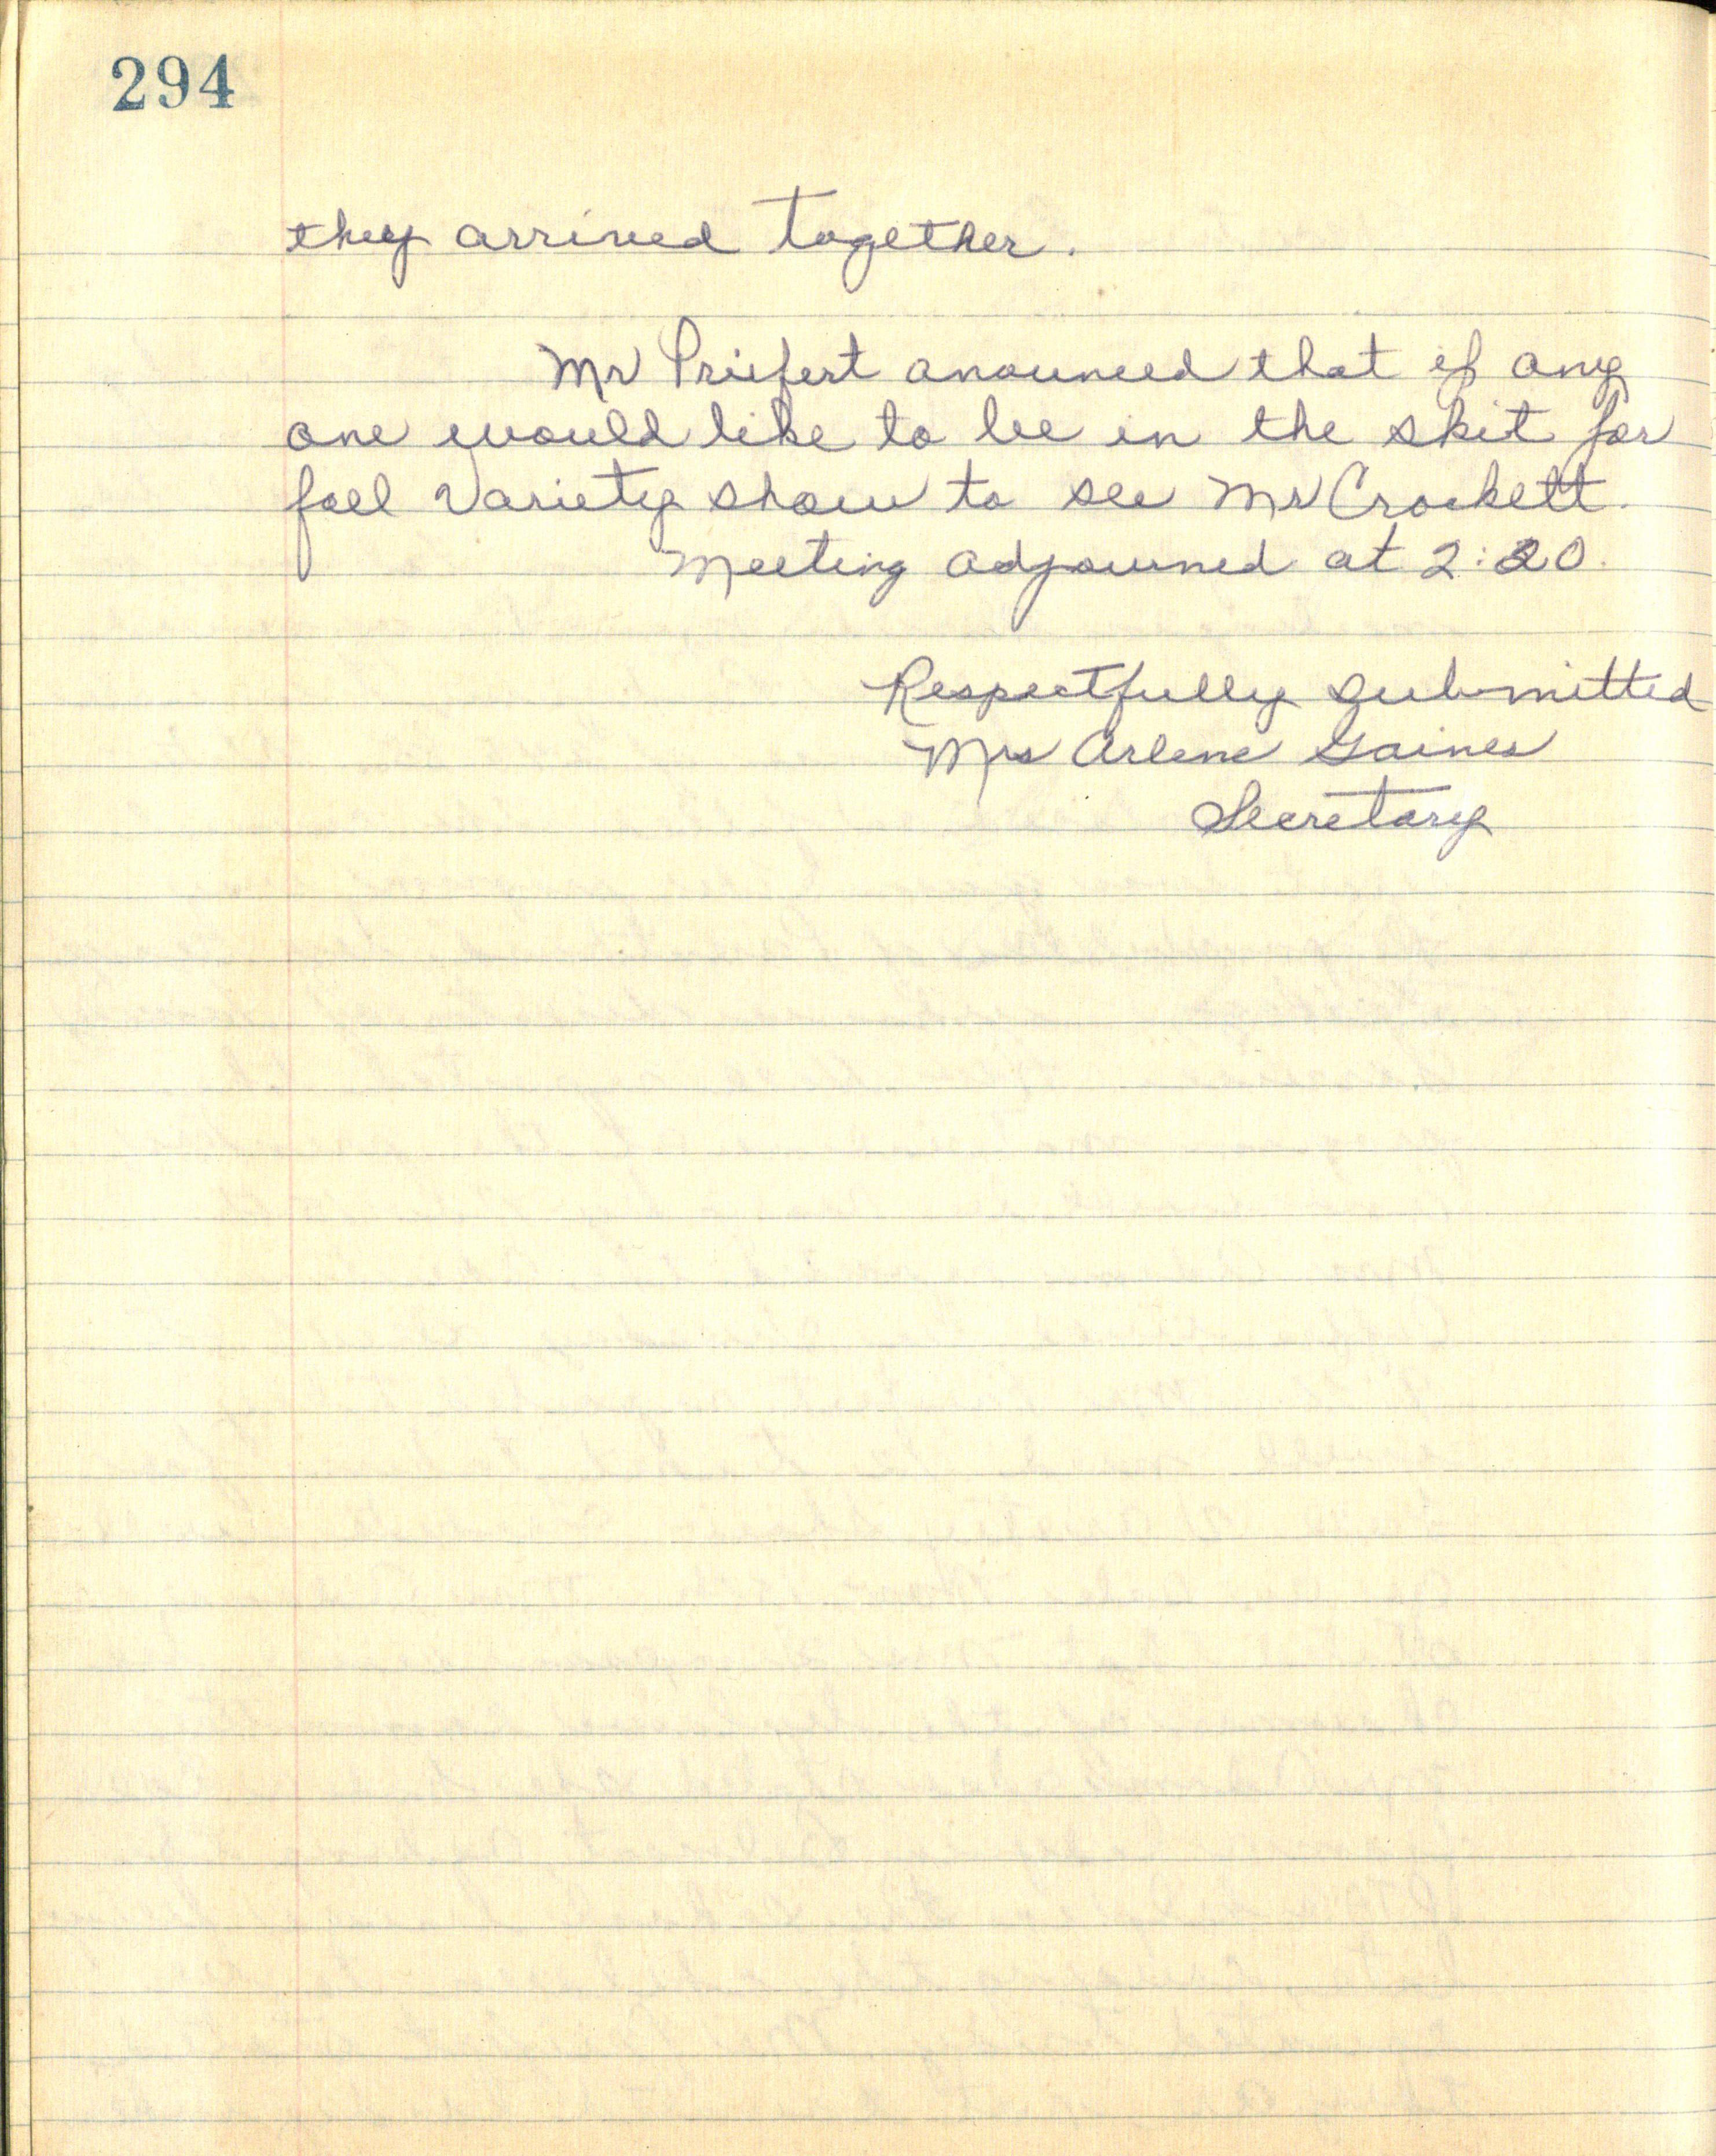 294
they arrived together.
Mr Priefert anounced that if any
one would like to be in the skit for
fall Variety show to see Mr Crockett.
Meeting adjourned at 2:20.
Respectfully submitted
Mrs Arlene Gaines
Secretary